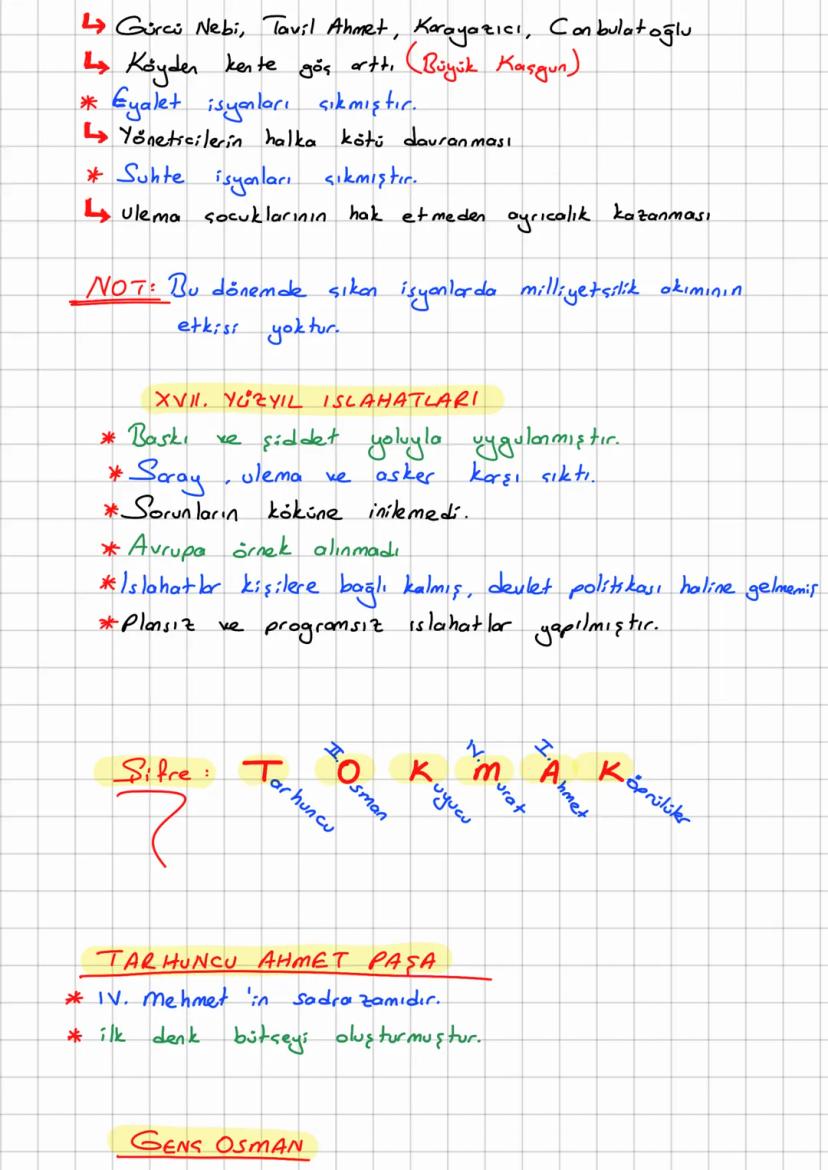 ↳ Gürcü Nebi, Tavil Ahmet, Karayazıcı, Canbulatoğlu
↳ Köyden kente göç arttı (Büyük Kaçgun)
* Eyalet isyanları çıkmıştır.
↳ Yöneticilerin halka kötü davranması
* Suhte isyanları çıkmıştır.
↳ ulema çocuklarının hak etmeden ayrıcalık kazanması
NOT: Bu dönemde çıkan isyanlarda milliyetçilik akımının
etkisi yoktur.
XVII. YÜZYIL ISLAHATLARI
* Baskı ve şiddet yoluyla uygulanmıştır.
* Saray, ulema ve asker karşı çıktı.
* Sorunların köküne inilemedi.
* Avrupa örnek alınmadı
* Islahatlar kişilere bağlı kalmış, devlet politikası haline gelmemiş
* Plansız ve programsız ıslahatlar yapılmıştır.
Şifre : Tarhuncu II. Osman Kuyucu IV. Murat I. Ahmet Köprülüler
TARHUNCU AHMET PAŞA
* IV. Mehmet 'in sadrazamıdır.
* ilk denk bütçeyi oluşturmuştur.
GENÇ OSMAN